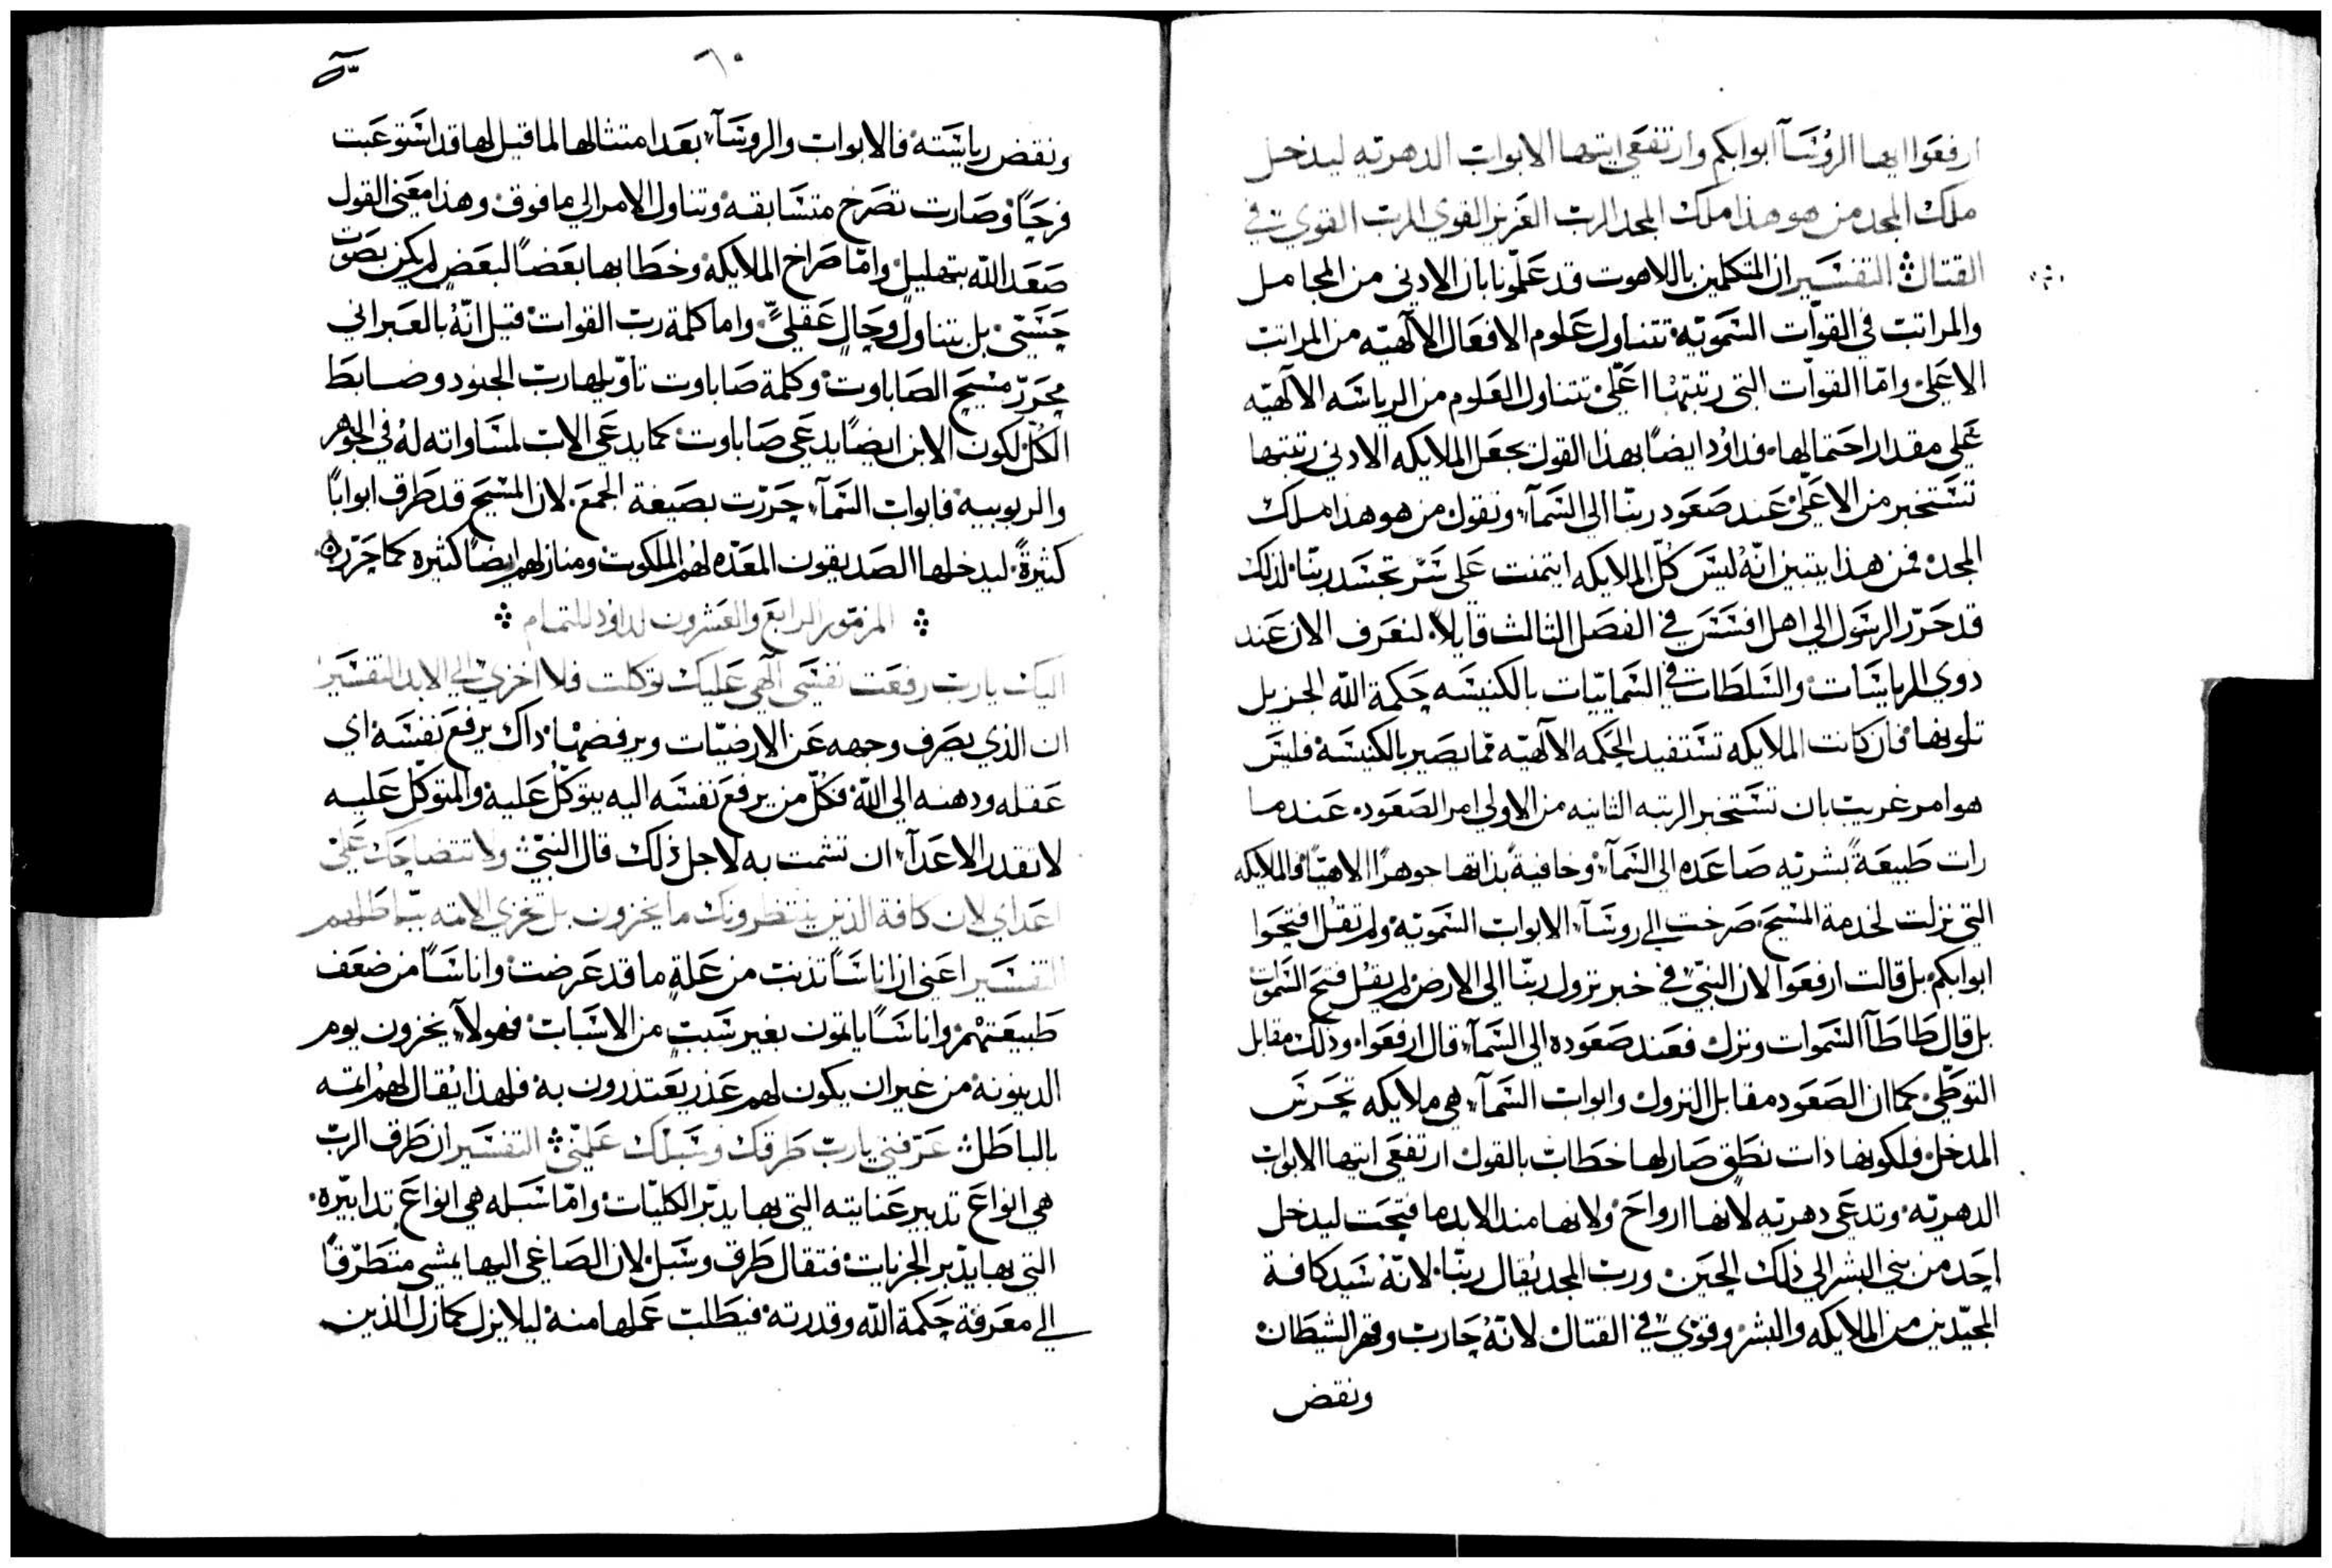 ارفعوا ايها الروسآ ابوابكم وارتفعي ايتها الابواب الدهريه ليدخل
ملك المجد من هو هذا ملك المجد الرب العزيز القوي الرب القوي في
القتال التفسير ان المتكلمين باللاهوت قد علمونا بان الادني من المحامل
والمراتب في القوات السموية تتناول علوم الافعال الالهيه من المراتب
الاعلي واما القوات التي رتبتها اعلي تتناول العلوم من الرياسه الالهيه
علي مقدار احتمالها فداود ايضاً بهذا القول يجعل الملايكه الادني رتبتها
تستخبر من الاعلي عند صعود ربنا الي السمآ وتقول من هو هذا ملك
المجد فمن هذا يتبين انه ليس كل الملايكه ايتمنت علي سر تجسد ربنا لذلك
قد حرر الرسول الي اهل افسس في الفصل الثالث قايلاً لنعرف الان عند
ذوي الرياسات والسلطات في السماييات بالكنيسه حكمة الله الجزيل
تلونها فان كانت الملايكه تستفيد الحكمه الالهيه مما يصير بالكنيسة فليس
هو امر غريب بان تستخبر الرتبه الثانيه من الاولي امر الصعود عندما
رات طبيعةً بشريه صاعده الي السمآ وخافيةً بذاتها جوهراً الاهياً فالملايكه
التي نزلت لخدمة المسيح صرخت الي روسآ الابواب السموية ولم تقل افتحوا
ابوابكم بل قالت ارفعوا لان النبي في خبر نزول ربنا الي الارض لم يقل فتح السموات
بل قال طاطآ السموات ونزل فعند صعوده الي السمآ قال ارفعوا وذلك مقابل
التوطي كما ان الصعود مقابل النزول وابواب السمآ هي ملايكه تحرس
المدخل ولكونها ذات نطق صار لها خطاب بالقول ارتفعي ايتها الابواب
الدهريه وتدعي دهريه لانها ارواح ولانها منذ الابد ما فتحت ليدخل
احد من بني البشر الي ذلك الحين ورب المجد يقال ربنا لانه سيد كافة
المجيدين من الملايكه والبشر وقوي في القتال لانه حارب وقهر الشيطان
ونقض
٦٠
ونقض رياسته فالابواب والروسآ بعد امتثالها لما قيل لها قد استوعبت
فرحاً وصارت تصرخ متسابقه وتناول الامر الي ما فوق وهذا معني القول
صعد الله بتهليل واما صراخ الملايكه وخطابها بعضاً لبعض لم يكن بصوت
حسي بل بتناول وحال عقلي واما كلمة رب القوات قيل انه بالعبراني
محرر مسيح الصاباوت وكلمة صاباوت تاويلها رب الجنود وضابط
الكل لكون الابن ايضاً يدعي صاباوت كما يدعي الاب لمساواته له في الجوهر
والربوبيه فابواب السمآ حررت بصيغة الجمع لان المسيح قد طرق ابواباً
كثيرةً ليدخلها الصديقون المعده لهم الملكوت ومنازلهم ايضاً كثيره كما حرر
المزمور الرابع والعشرون لداود للتمام
اليك يارب رفعت نفسي الهي عليك توكلت فلا اخزي الي الابد التفسير
ان الذي يصرف وجهه عن الارضيات ويرفضها ذاك يرفع نفسه اي
عقله وذهنه الي الله فكل من يرفع نفسه اليه يتوكل عليه والمتوكل عليه
لا تقدر الاعدآ ان تشمت به لاجل ذلك قال النبي ولا تتضاحك علي
اعداي لان كافة الذين ينتظرونك ما يخزون بل تخزي الامه بباطلهم
التفسير اعني ان اناساً تذنب من علةٍ ما قد عرضت واناساً من ضعف
طبيعتهم واناساً ياثمون بغير سبب من الاسباب فهولآ يخزون يوم
الدينونه من غير ان يكون لهم عذر يعتذرون به فلهذا يقال لهم اثمه
بالباطل عرفني يارب طرقك وسبلك علمني التفسير ان طرق الرب
هي انواع تدبير عنايته التي بها يدبر الكليات واما سبله هي انواع تدابيره
التي بها يدبر الجزيات فتقال طرق وسبل لان الصاغي اليها يمشي متطرقاً
الي معرفة حكمة الله وقدرته فيطلب عملها منه ليلا يزل كما زل الذين